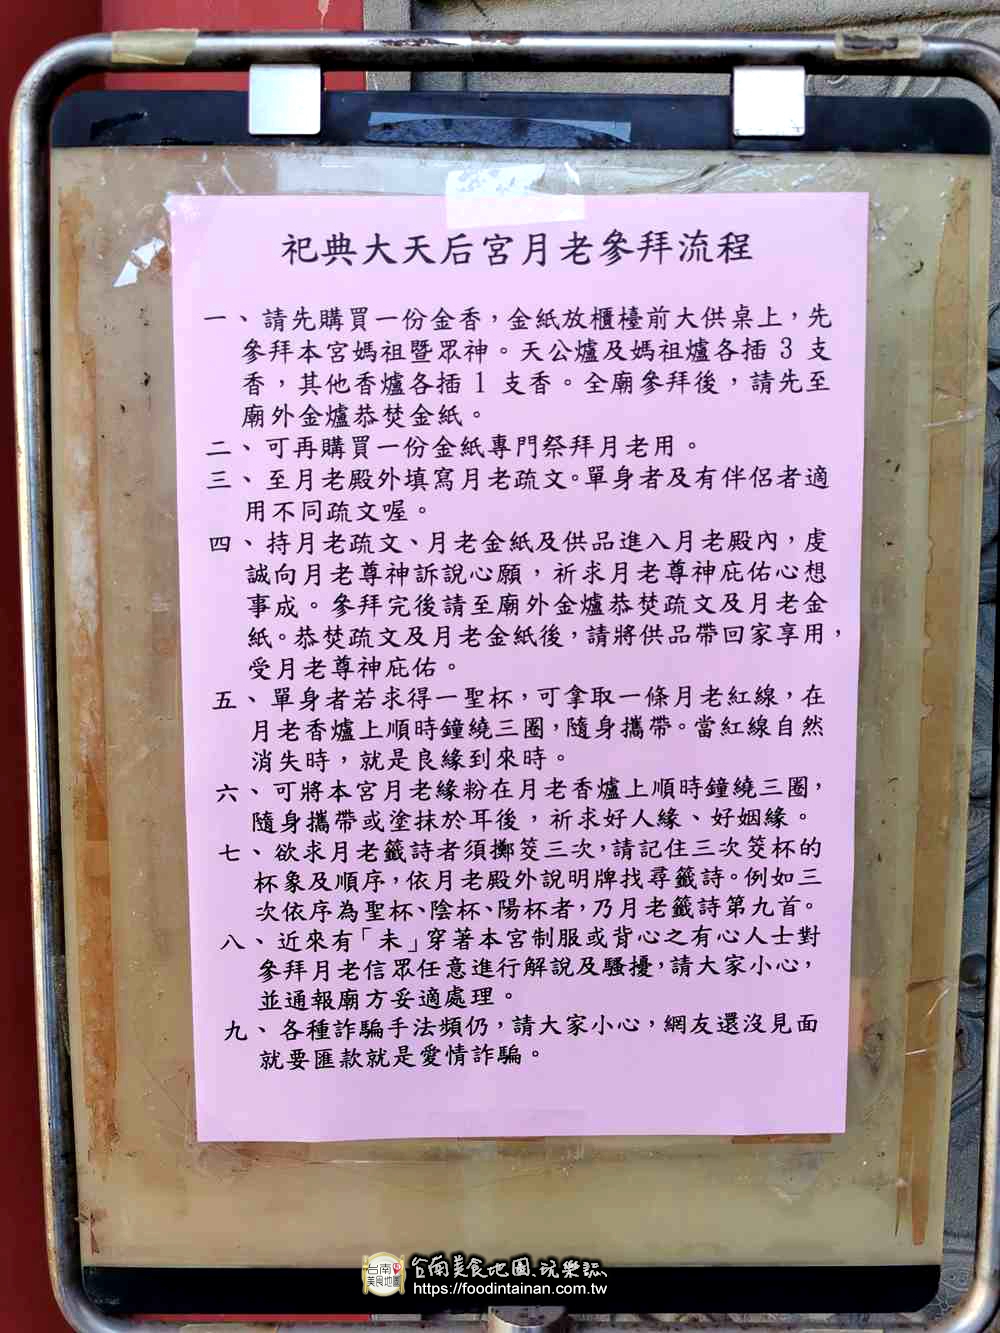 祀典大天后宮月老參拜流程
一、請先購買一份金香，金紙放櫃檯前大供桌上，先
參拜本宮媽祖暨眾神。天公爐及媽祖爐各插 3 支
香，其他香爐各插 1 支香。全廟參拜後，請先至
廟外金爐恭焚金紙。
二、可再購買一份金紙專門祭拜月老用。
三、至月老殿外填寫月老疏文。單身者及有伴侶者適
用不同疏文喔。
四、持月老疏文、月老金紙及供品進入月老殿內，虔
誠向月老尊神訴說心願，祈求月老尊神庇佑心想
事成。參拜完後請至廟外金爐恭焚疏文及月老金
紙。恭焚疏文及月老金紙後，請將供品帶回家享用，
受月老尊神庇佑。
五、單身者若求得一聖杯，可拿取一條月老紅線，在
月老香爐上順時鐘繞三圈，隨身攜帶。當紅線自然
消失時，就是良緣到來時。
六、可將本宮月老緣粉在月老香爐上順時鐘繞三圈，
隨身攜帶或塗抹於耳後，祈求好人緣、好姻緣。
七、欲求月老籤詩者須擲筊三次，請記住三次筊杯的
杯象及順序，依月老殿外說明牌找尋籤詩。例如三
次依序為聖杯、陰杯、陽杯者，乃月老籤詩第九首。
八、近來有「未」穿著本宮制服或背心之有心人士對
參拜月老信眾任意進行解說及騷擾，請大家小心，
並通報廟方妥適處理。
九、各種詐騙手法頻仍，請大家小心，網友還沒見面
就要匯款就是愛情詐騙。
台南美食地圖
台南美食地圖.玩樂誌
https://foodintainan.com.tw